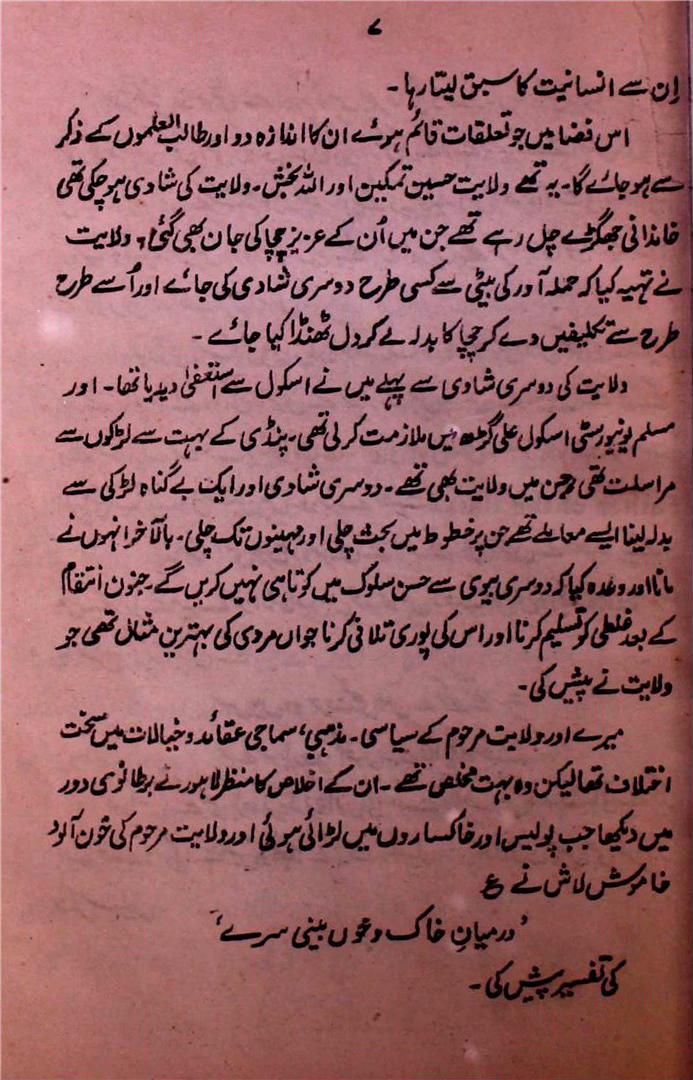 ۷
اِن سے انسانیت کا سبق لیتا رہا۔
اس فضا میں جو تعلقات قائم ہوئے ان کا اندازہ دو اور طالب العلموں کے ذکر
سے ہو جائے گا۔ یہ تھے ولایت حسین تمکین اور اللہ بخش۔ ولایت کی شادی ہو چکی تھی
خاندانی جھگڑے چل رہے تھے جن میں اُن کے عزیز چچا کی جان بھی گئی۔ ولایت
نے تہیہ کیا کہ حملہ آور کی بیٹی سے کسی طرح دوسری شادی کی جائے اور اُسے طرح
طرح سے تکلیفیں دے کر چچا کا بدلہ لے کر دل ٹھنڈا کیا جائے۔
ولایت کی دوسری شادی سے پہلے میں نے اسکول سے استعفیٰ دیدیا تھا۔ اور
مسلم یونیورسٹی اسکول علی گڑھ میں ملازمت کر لی تھی۔ پنڈی کے بہت سے لڑکوں سے
مراسلت تھی جن میں ولایت بھی تھے۔ دوسری شادی اور ایک بے گناہ لڑکی سے
بدلہ لینا ایسے معاملے تھے جن پر خطوط میں بحث چلی اور مہینوں تک چلی۔ بالآخر انہوں نے
مانا اور وعدہ کیا کہ دوسری بیوی سے حسن سلوک میں کوتاہی نہیں کریں گے۔ جنون انتقام
کے بعد غلطی کو تسلیم کرنا اور اس کی پوری تلافی کرنا جواں مردی کی بہترین مثال تھی جو
ولایت نے پیش کی۔
میرے اور ولایت مرحوم کے سیاسی۔ مذہبی، سماجی عقائد و خیالات میں سخت
اختلاف تھا لیکن وہ بہت مخلص تھے۔ ان کے اخلاص کا منظر لاہور نے برطانوی دور
میں دیکھا جب پولیس اور خاکساروں میں لڑائی ہوئی اور ولایت مرحوم کی خون آلود
خاموش لاش نے ع
’درمیانِ خاک و خوں بینی سرے‘
کی تفسیر پیش کی۔